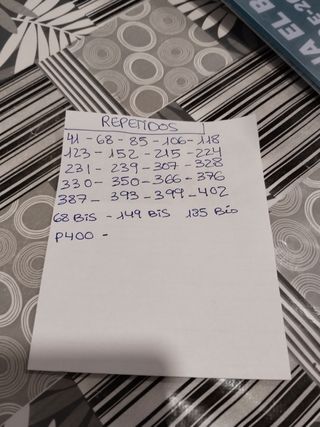 REPETIDOS
41 - 68 - 85 - 106 - 118
123 - 152 - 215 - 224
231 - 239 - 307 - 328
330 - 350 - 366 - 376
387 - 393 - 399 - 402
68 BIS - 149 BIS 135 Bis
P400 -
IA EL B